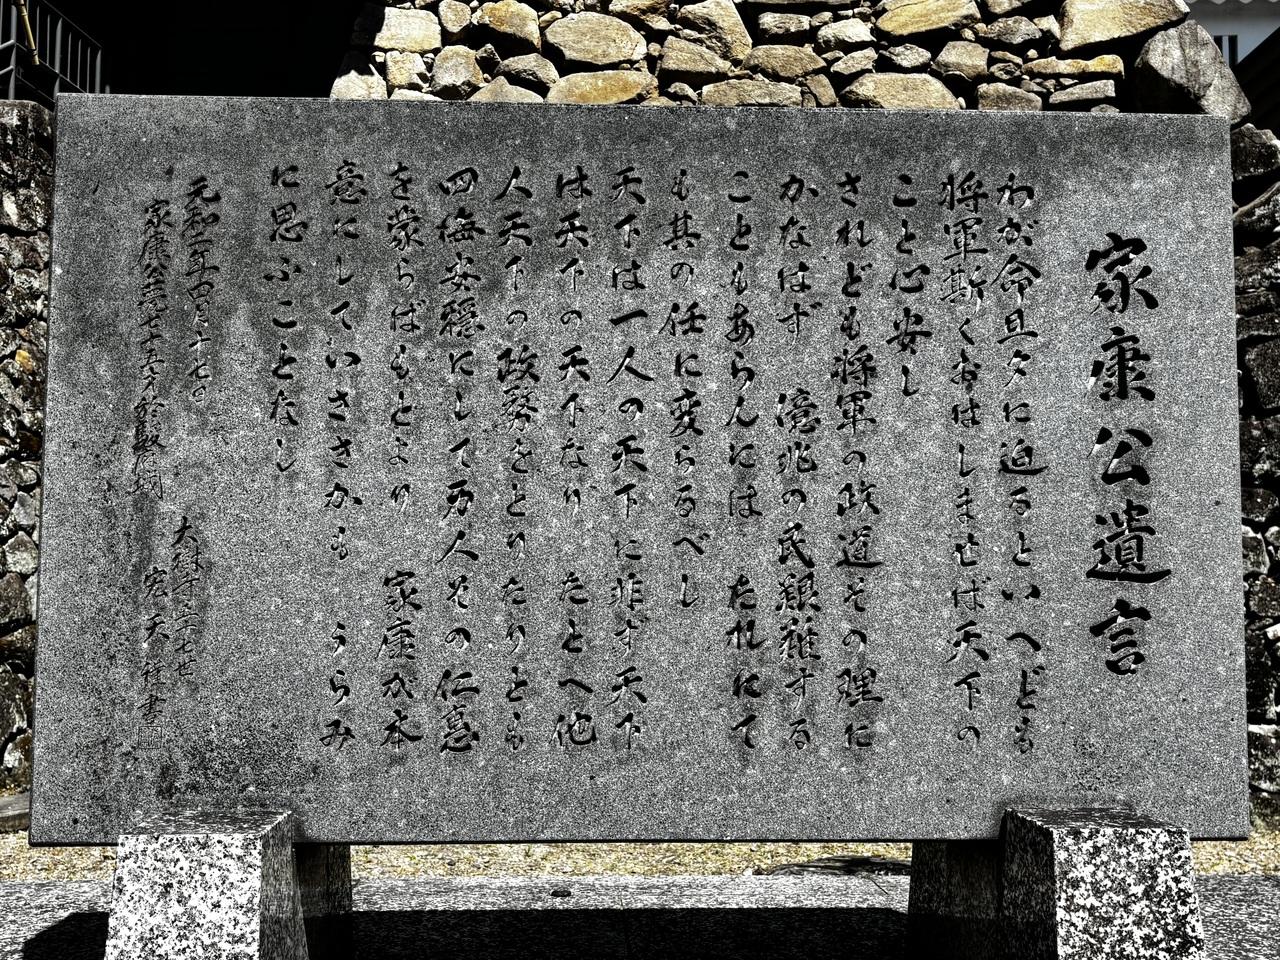 家康公遺言
わが命旦夕に迫るといへども
将軍斯くおはしませば天下の
こと心安し
されども将軍の政道その理に
かなはず 億兆の民艱難する
こともあらんには たれにて
も其の任に変らるべし
天下は一人の天下に非ず天下
は天下の天下なり たとへ他
人天下の政務をとりたりとも
四海安穏にして万人その仁恵
を蒙らばもとより 家康が本
意にしていささかも うらみ
に思ふことなし
元和二年四月十七日
家康公薨七十五才於駿府城
大樹寺 宏天程書